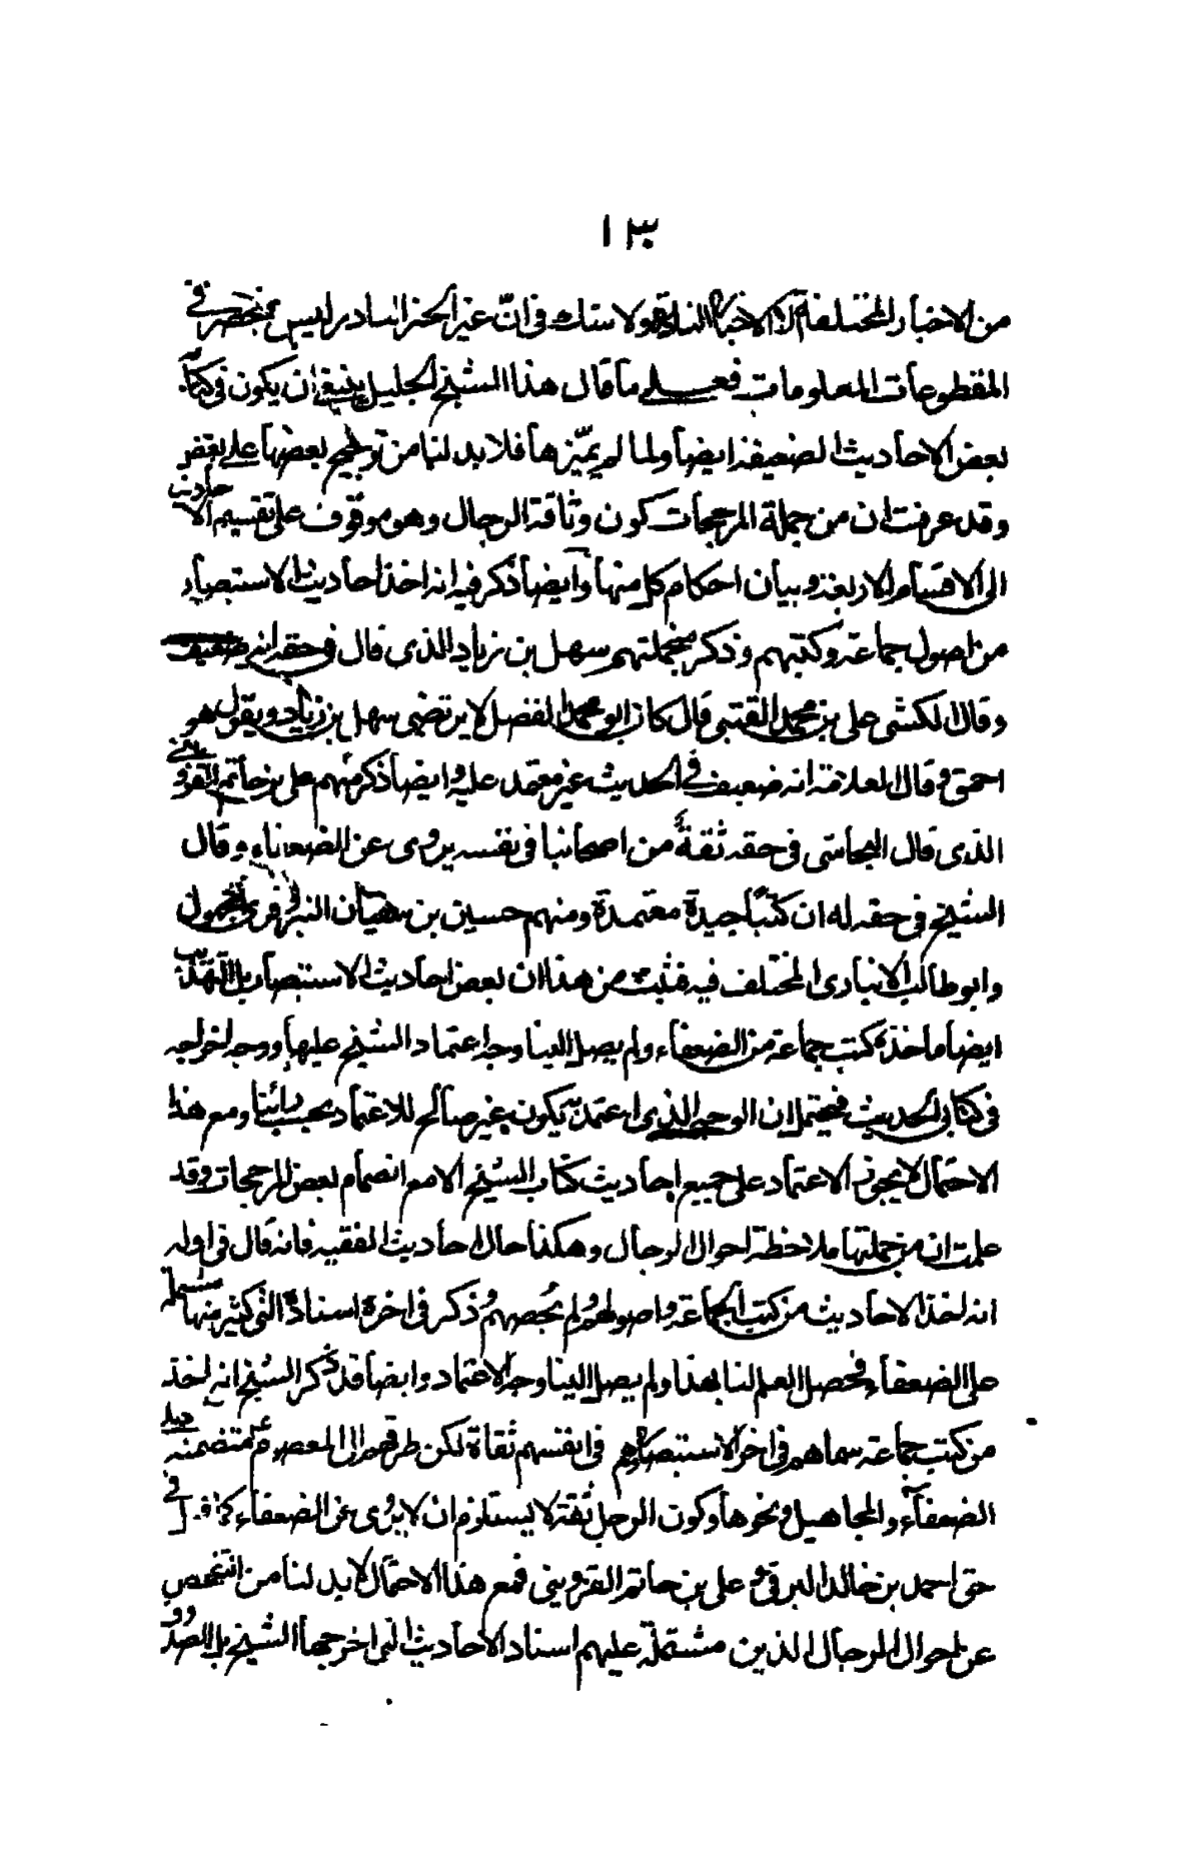 ١٣
من الاخبار المختلفة الا الاخبار النادرة ولا شك في انّ غير الخبر النادر ليس بمنحصر في
المقطوعات المعلومات فعلى ما قال هذا الشيخ الجليل ينبغي ان يكون في كتابه
بعض الاحاديث الضعيفة ايضا ولما لم يميّزها فلا بد لنا من ترجيح بعضها على بعض
وقد عرفت ان من جملة المرجحات كون وثاقة الرجال وهو موقوف على تقسيم الاحاديث
الى الاقسام الاربعة وبيان احكام كل منها وايضا ذكر فيه انه اخذ احاديث الاستبصار
من اصول جماعة وكتبهم وذكر بجملتهم سهل بن زياد الذى قال في حقه انه ضعيف
وقال الكشى على بن محمد القتيبى قال كان ابو محمد الفضل لا يرتضى سهل بن زياد ويقول هو
احمق وقال العلامة انه ضعيف في الحديث غير معتمد عليه وايضا ذكر منهم على بن حاتم القزويني
الذى قال النجاشى في حقه ثقة من اصحابنا في نفسه يروى عن الضعفاء وقال
الشيخ في حقه له ان كتبا جيدة معتمدة ومنهم حسين بن سفيان البزوفرى المجهول
وابو طالب الانبارى المختلف فيه فثبت من هذا ان بعض احاديث الاستبصار بل التهذيب
ايضا ماخذه كتب جماعة من الضعفاء ولم يصل الينا وجه اعتماد الشيخ عليها ووجه اخراجه
في كتابى الحديث فيحتمل ان الوجه الذى اعتمد به يكون غير صالح للاعتماد بحسب رائنا ومع هذا
الاحتمال لا يجوز الاعتماد على جميع احاديث كتاب الشيخ الا مع انضمام بعض المرجحات وقد
علمت ان من جملتها ملاحظة احوال الرجال وهكذا حال احاديث الفقيه فانه قال في اوله
انه اخذ الاحاديث من كتب الجماعة واصولهم ولم يحصهم وذكر في اخره اسناده التى كثير منها مشتملة
على الضعفاء فحصل العلم لنا بهذا ولم يصل الينا وجه الاعتماد وايضا قد ذكر الشيخ انه اخذ
من كتب جماعة سماهم في اخر الاستبصار وهم في انفسهم ثقاة لكن طرقهم الى المعصوم ع متضمنة
الضعفاء والمجاهيل ونحوها وكون الرجل ثقة لا يستلزم ان لا يروى عن الضعفاء كما قيل في
حق احمد بن خالد البرقى وعلى بن حاتم القزوينى فمع هذا الاحتمال لا بد لنا من التفحص
عن احوال الرجال الذين مشتملة عليهم اسناد الاحاديث التى اخرجها الشيخ بل الصدوق